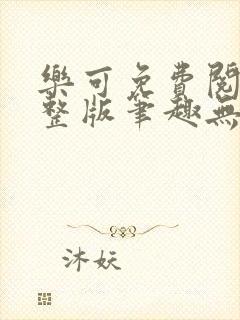 樂可免費閱
整版筆趣無
沐妖